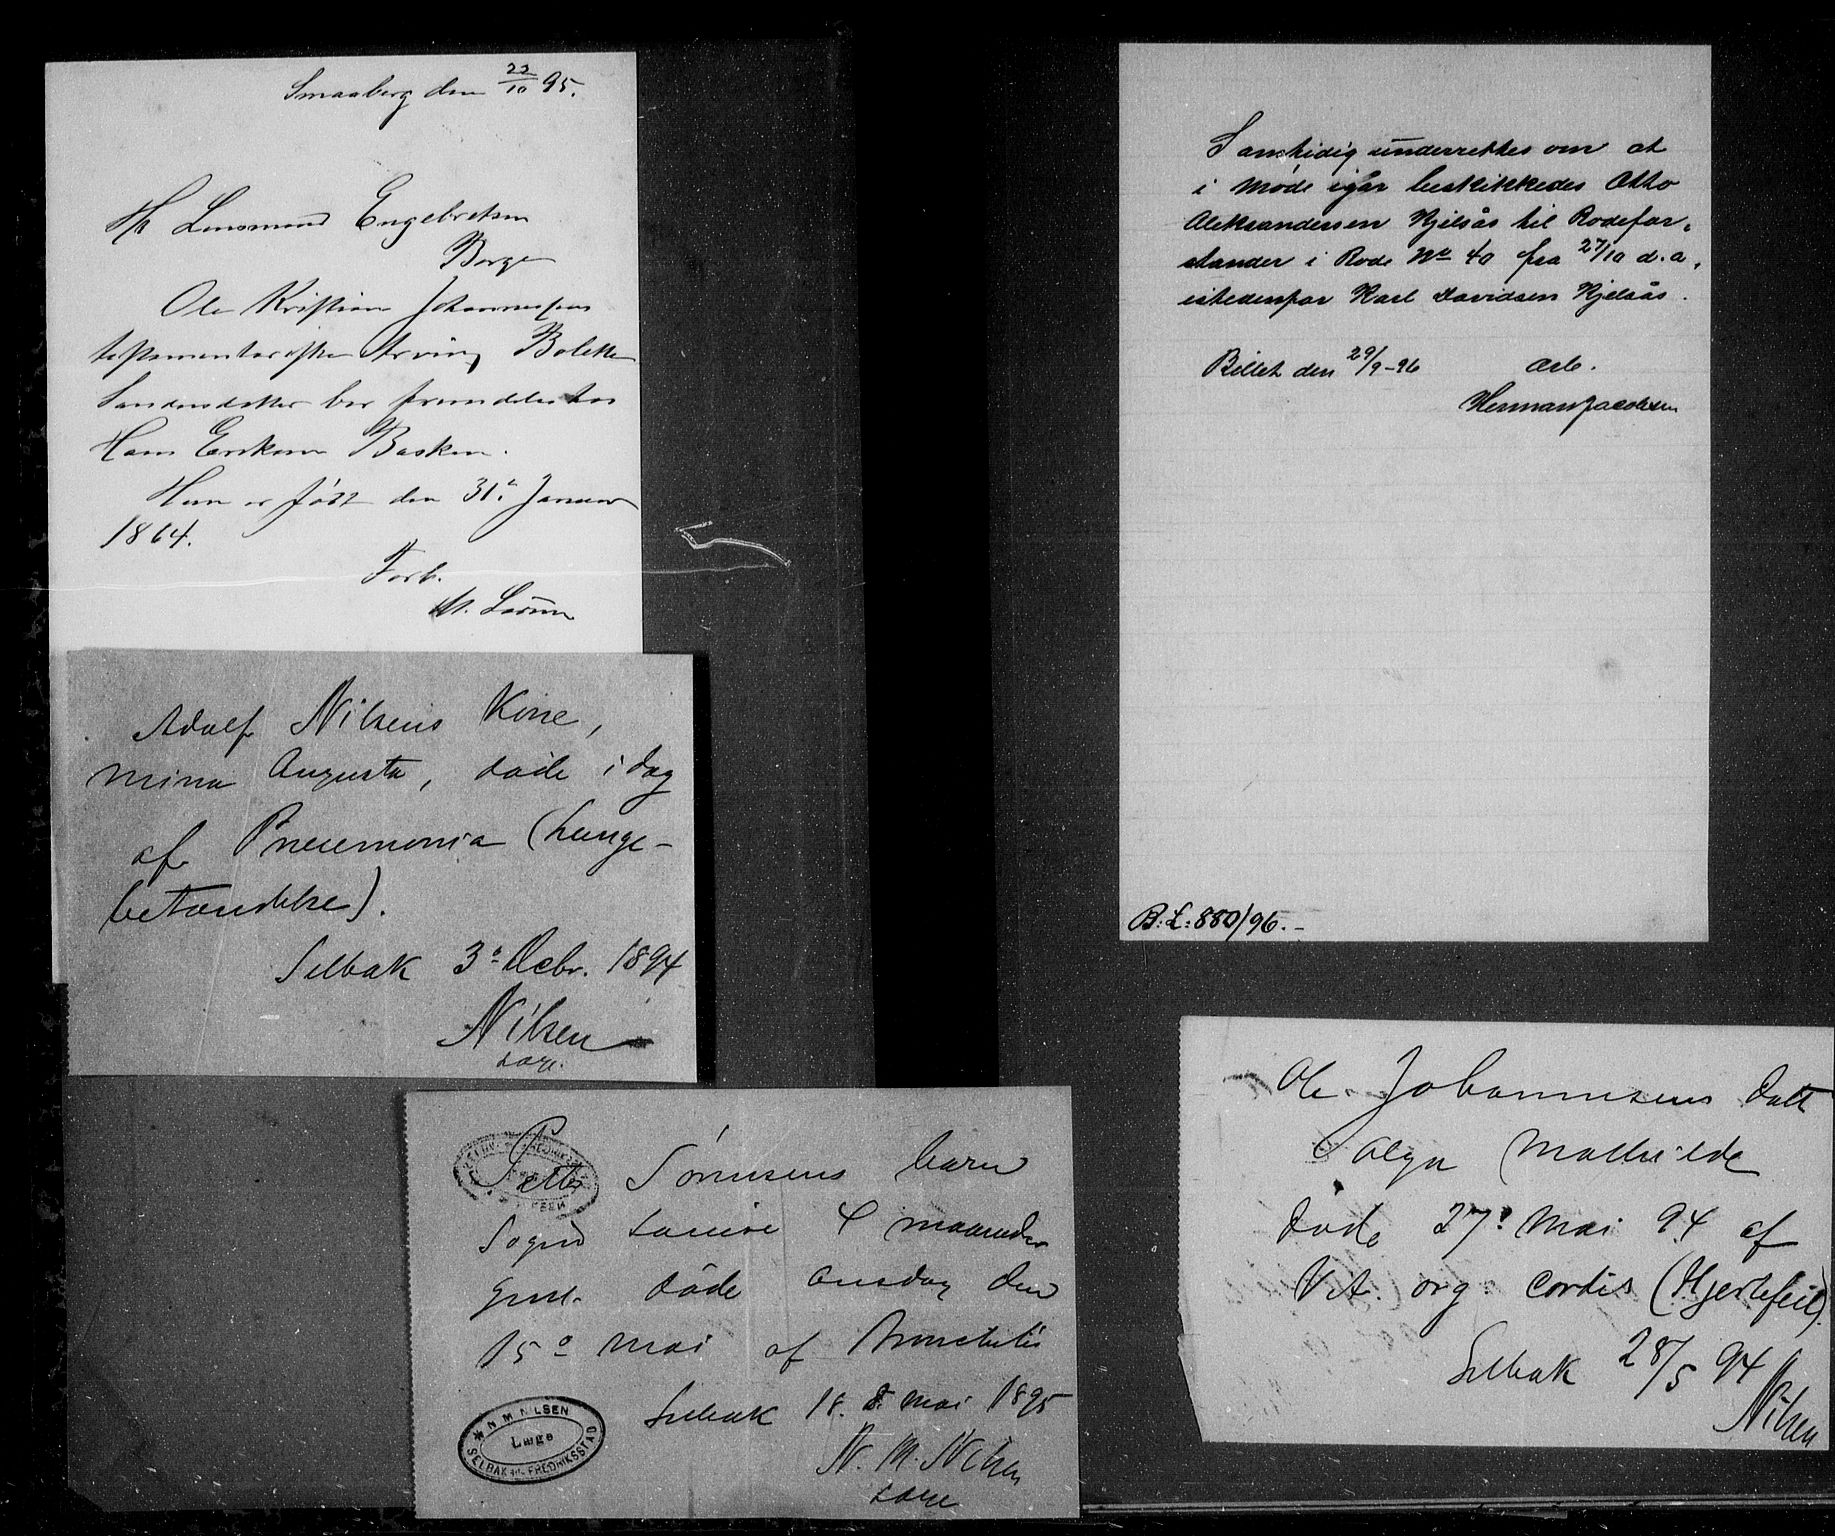 Smaaberg den 22/10 95.
Hr Lensmand Engebretsen
Borge
Ole Kristian Johannesens
testamentariske Arving Bolette
Sandersdatter bor fremdeles hos
Hans Eriksen Basken.
Hun er født den 31te Januar
1864.
Forb.
M. Larsen
Adolf Nilsens Kone,
Mina Augusta, døde i dag
af Pneumonia (Lunge-
betændelse).
Selbak 3o Decbr. 1894
Nilsen
Læge.
Petter Sørensens barn
Signe Louise 4 maaneder
gml. døde onsdag den
15o Mai af Bronchitis
Selbak 18. Mai 1895
N. M. Nilsen
Læge
N. M. NILSEN
Læge
SELBAK pr. FREDRIKSSTAD
Samtidig underrettes om at
i møde igår beskikkedes Otto
Aleksandersen Kjelsås til Rodefor-
stander i Rode No 40 fra 27/10 d.a.
istedenfor Karl Davidsen Kjelsås.
Billet den 29/9-96 Ærb.
Herman Jacobsen
B.L: 880/96.-
Ole Johannesens Datt
Valga Mathilde
døde 27o Mai 94 af
Vit. org. cordis (Hjertefeil).
Selbak 28/5 94
Nilsen